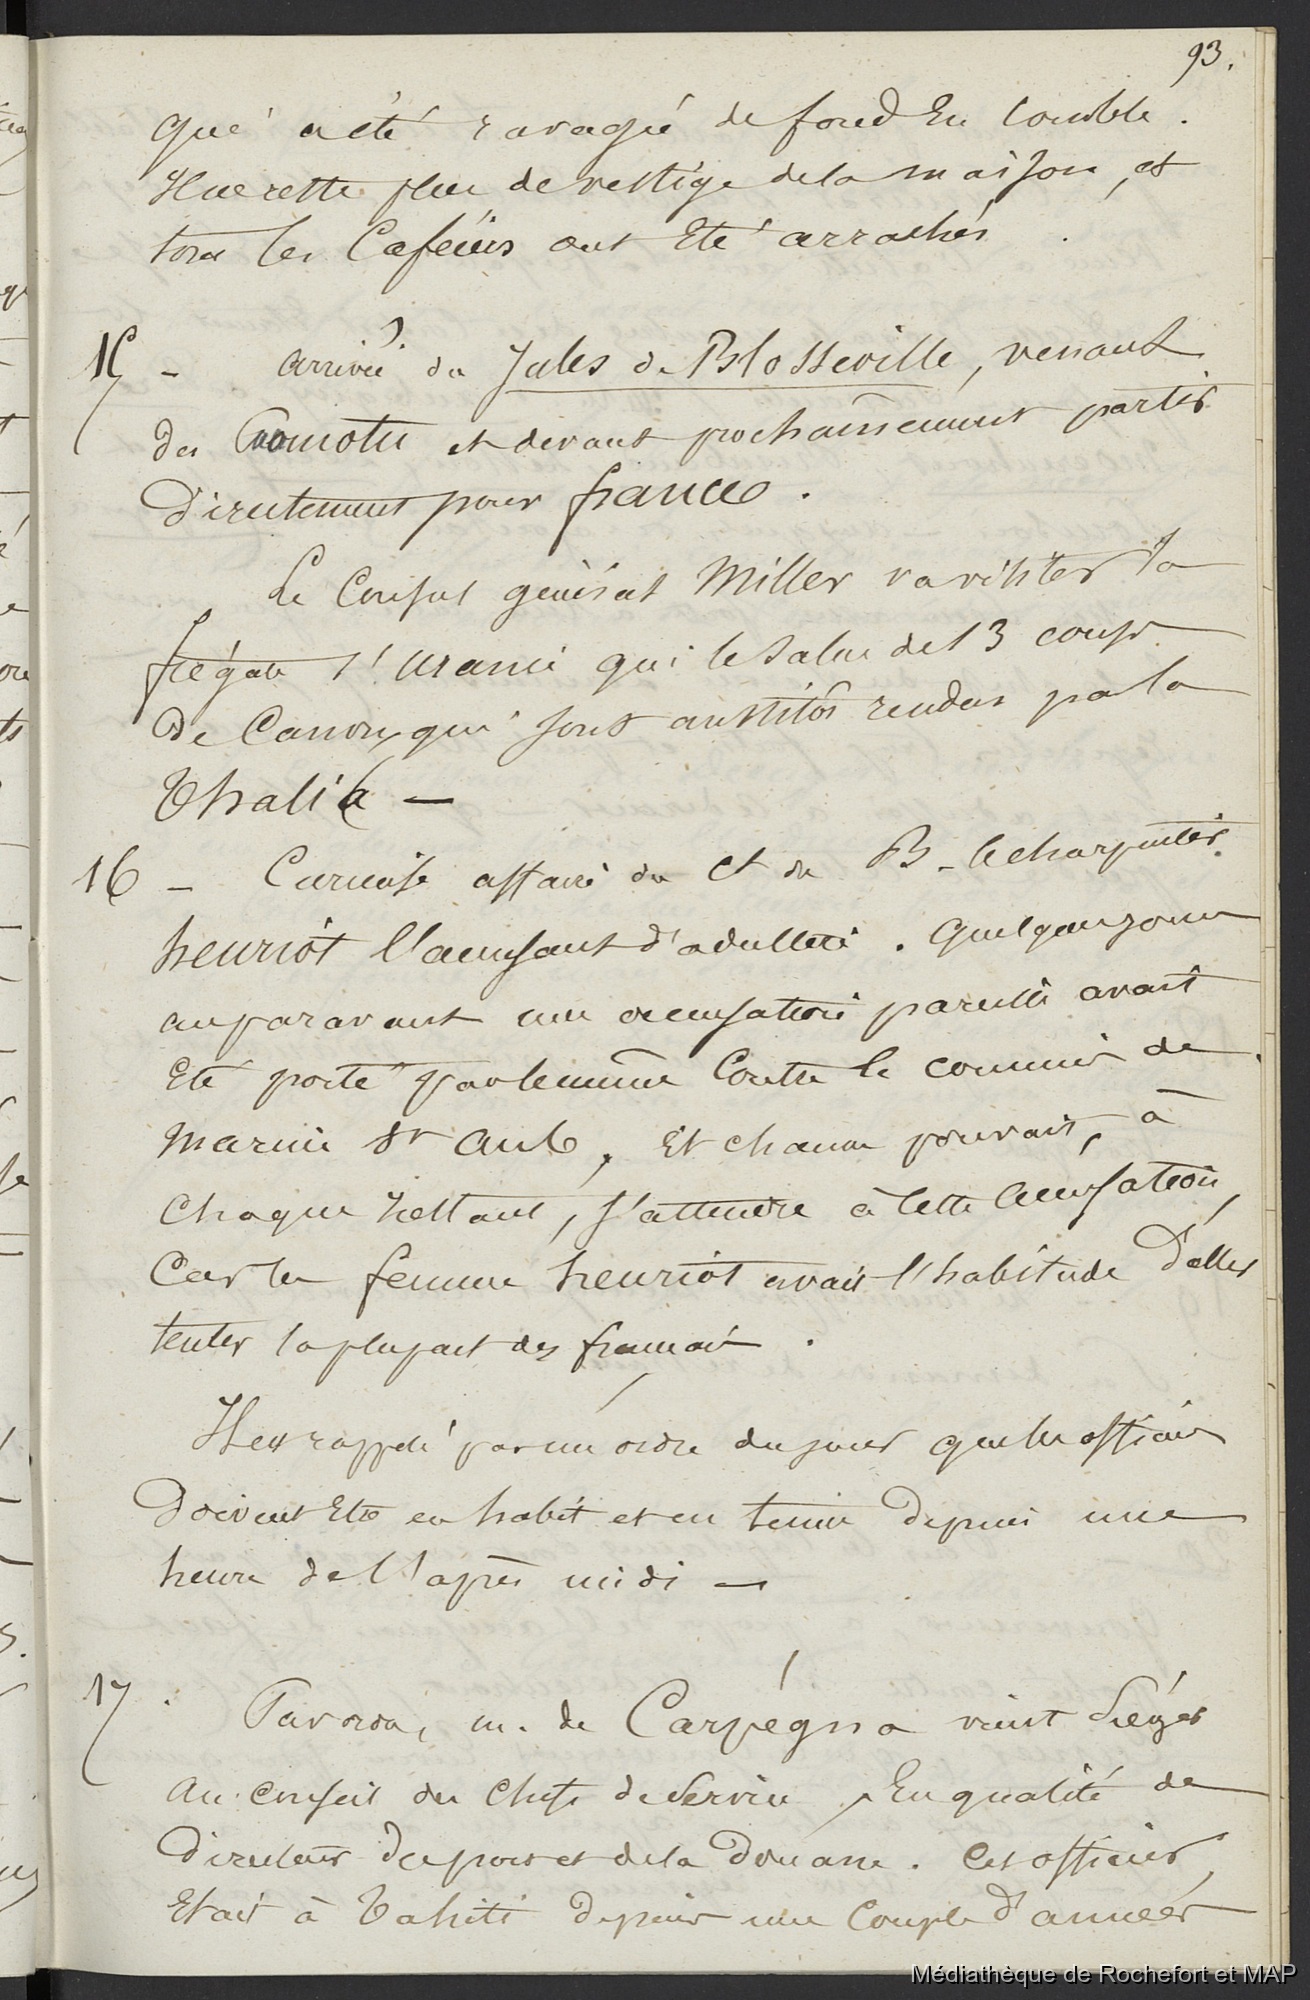 93.
qui a été ravagé de fond En Comble.
Il ne reste plus de vestige de la maison, et
tous les Caféiers ont Eté arrachés.
15 - arrivée du Jules de Blosseville, venant
des Pomotu et devant prochainement partir
Directement pour france.
Le Consul général Miller va visiter la
frégate l'Uranie qui le salue de 13 coups
De Canon, qui sont aussitôt rendus par la
Thalia —
16 - Curieuse affaire du Ct du B. le charpentier
henriot l'accusant d'adultère. Quelques jours
auparavant une accusation pareille avait
Eté porté par le même Contre le commis de
marine St Aub, Et chacun pouvait, à
Chaque instant, s'attendre à cette accusation,
Car la femme henriot avait l'habitude D'aller
tenter la plupart des français.
Il est rappelé par un ordre du jour que les officiers
Doivent Etre en habit et en tenue Depuis une
heure de l'après midi —
17. Par ordre, m. de Carpégna vient Siéger
au Conseil des Chefs de Service, En qualité de
Directeur Du port et de la Douane. Cet officier
Etait à Tahiti Depuis une Couple d'années
Médiathèque de Rochefort et MAP